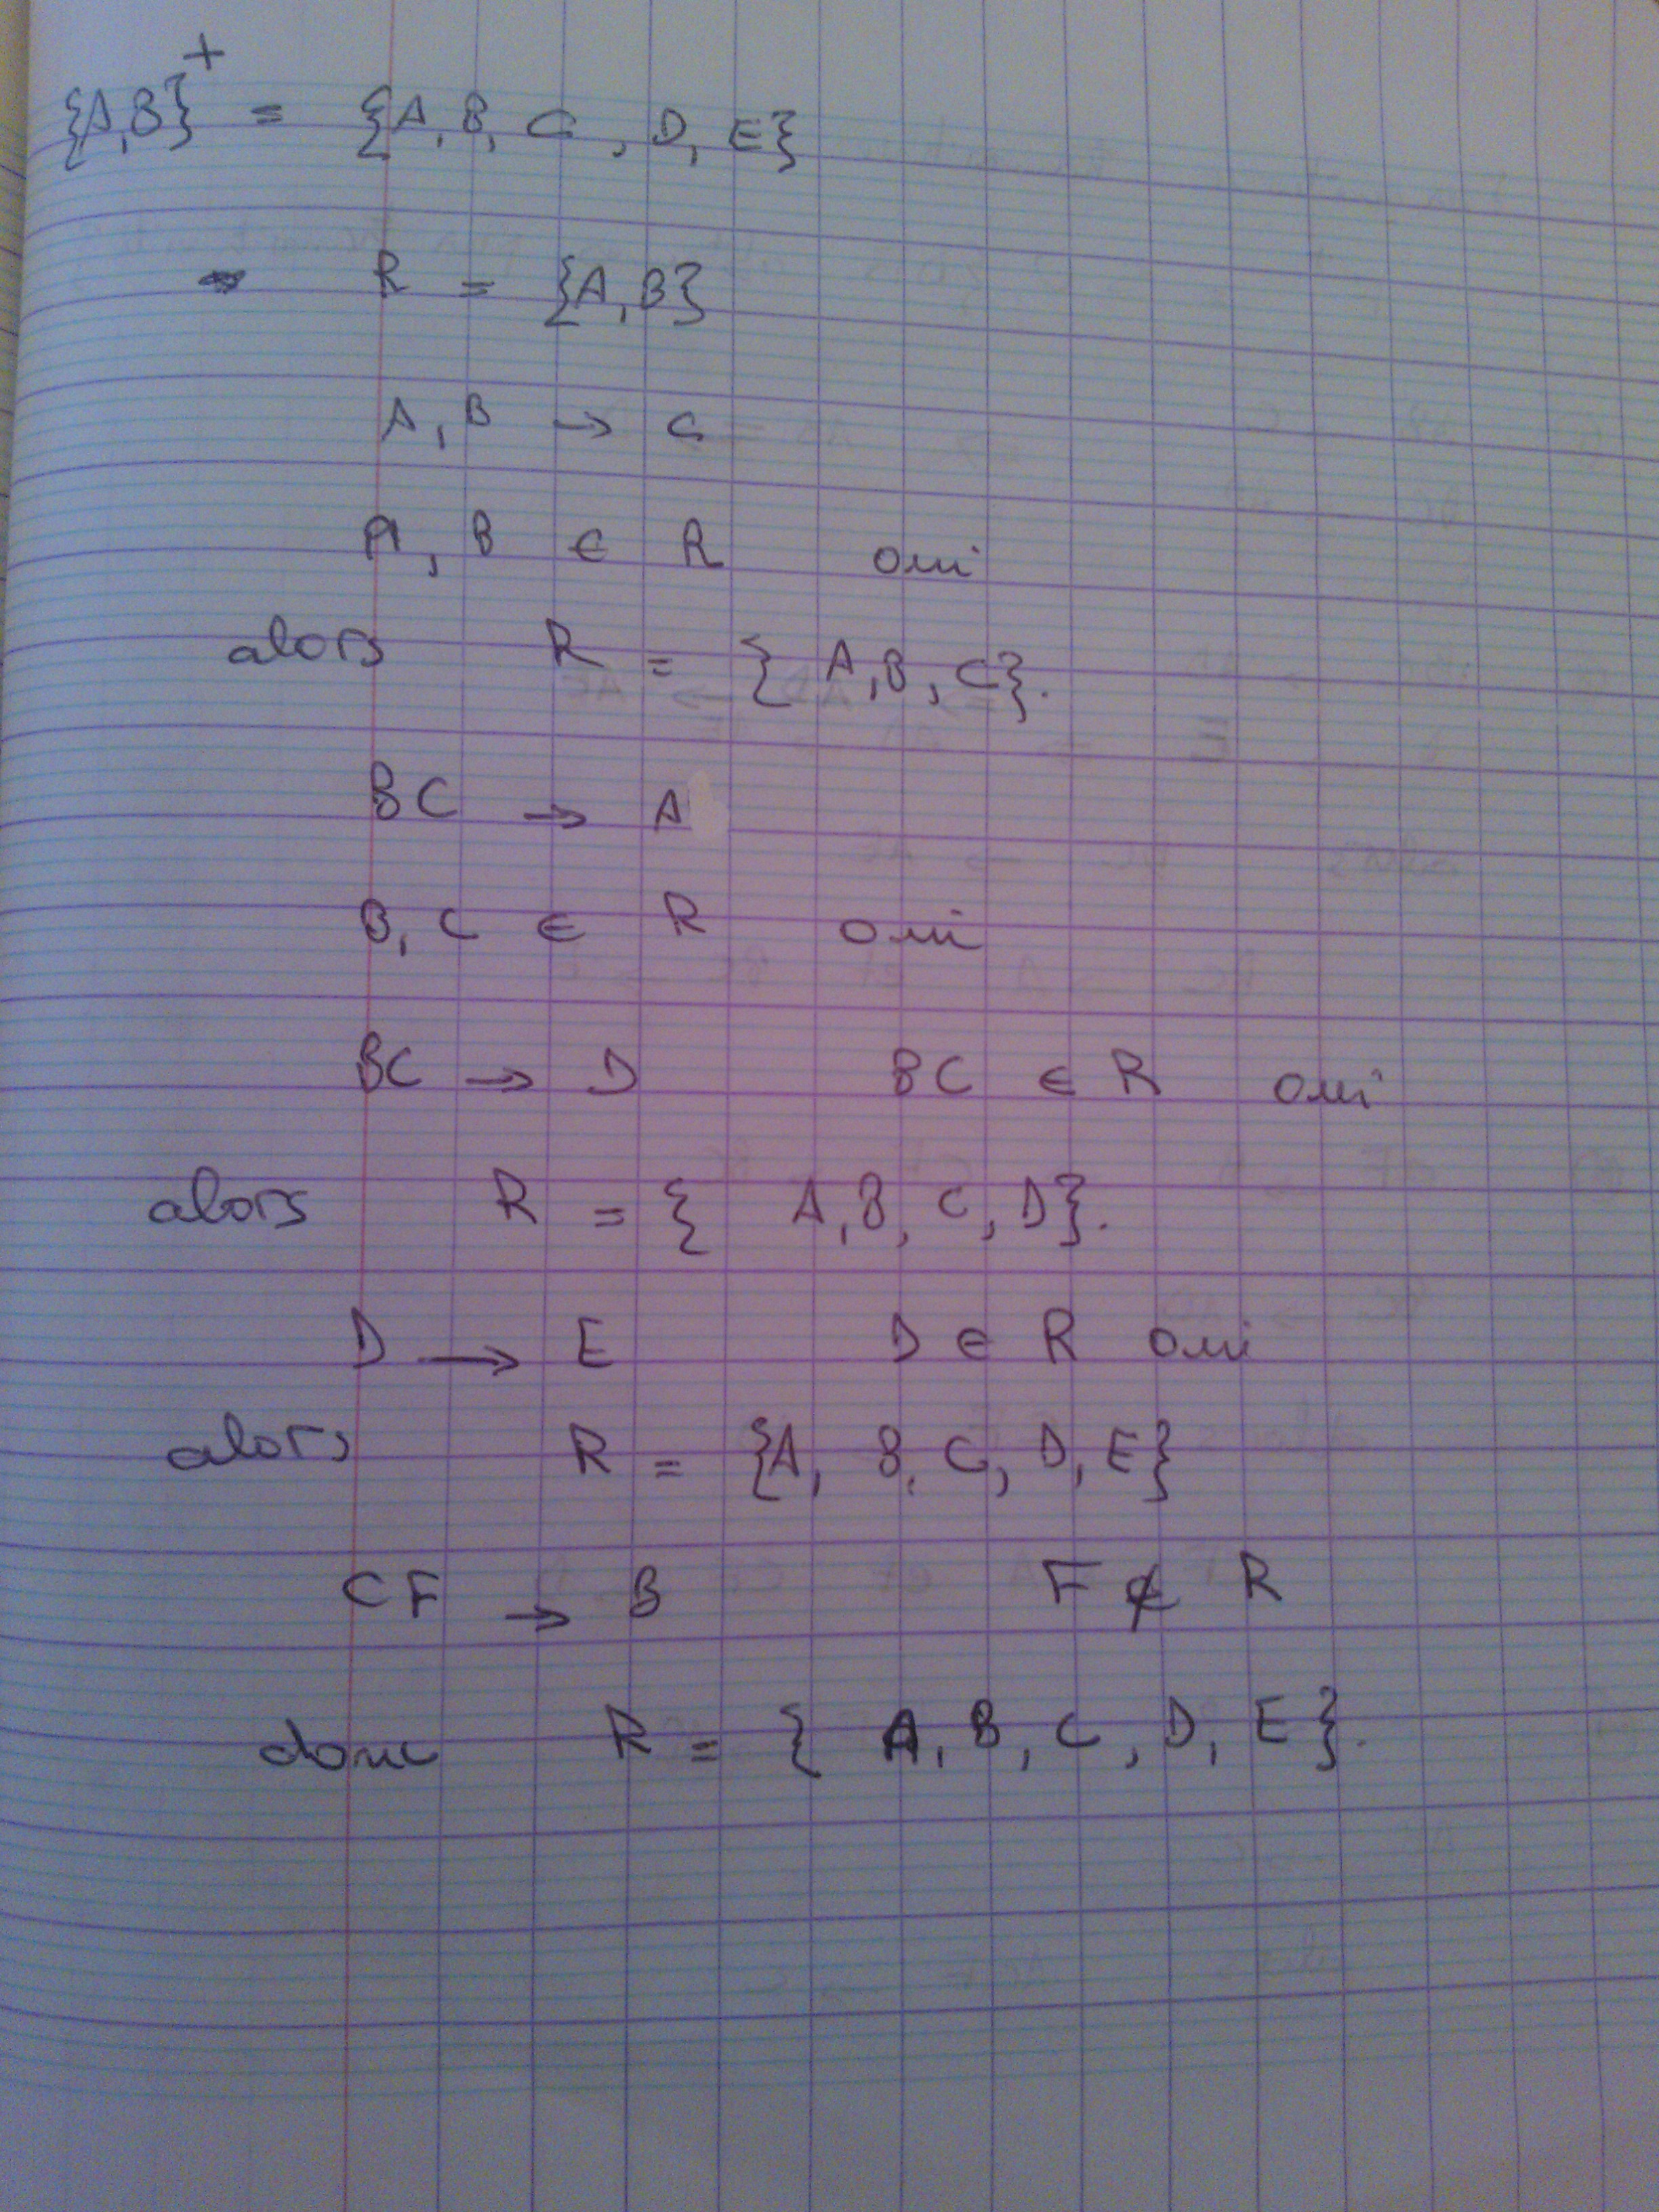 {A,B}+ = {A, B, C, D, E}
R = {A,B}
A, B → C
A, B ∈ R oui
alors R = { A,B, C}.
BC → A
B, C ∈ R oui
BC → D BC ∈ R oui
alors R = { A,B, C, D}.
D → E D ∈ R oui
alors R = {A, B, C, D, E}
CF → B F ∉ R
donc R = { A, B, C, D, E}.